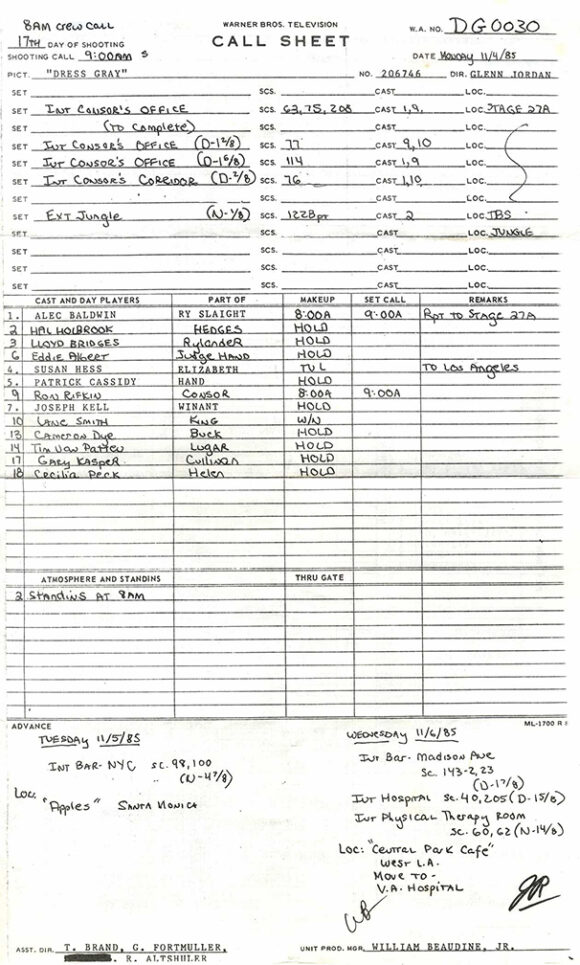 8AM CREW CALL
WARNER BROS. TELEVISION
W.A. NO. DG0030
17TH DAY OF SHOOTING
CALL SHEET
SHOOTING CALL 9:00AM
DATE Monday 11/4/85
PICT. "DRESS GRAY" NO. 206746 DIR. GLENN JORDAN
SET SCS. CAST LOC.
SET INT CONSOR'S OFFICE SCS. 63,75,208 CAST 1,9, LOC. STAGE 27A
SET (TO COMPLETE) SCS. CAST LOC.
SET INT CONSOR'S OFFICE SCS. 77 CAST 9,10 LOC.
SET INT CONSOR'S OFFICE SCS. 114 CAST 1,9 LOC.
SET INT CONSOR'S CORRIDOR (D-2/8) SCS. 76 CAST 1,10 LOC.
SET SCS. CAST LOC.
SET EXT JUNGLE (N-1/8) SCS. 122B pt CAST 2 LOC. TBS
SET SCS. CAST LOC. JUNGLE
SET SCS. CAST LOC.
SET SCS. CAST LOC.
SET SCS. CAST LOC.
CAST AND DAY PLAYERS PART OF MAKEUP SET CALL REMARKS
1. ALEC BALDWIN RY SLAIGHT 8:00A 9:00A RPT TO STAGE 27A
2 HAL HOLBROOK HEDGES HOLD
3 LLOYD BRIDGES Rylander HOLD
6 Eddie Albert Judge HAND HOLD
4. SUSAN HESS ELIZABETH TVL TO LOS ANGELES
5. PATRICK CASSIDY HAND HOLD
9 RON RIFKIN CONSOR 8:00A 9:00A
7. JOSEPH KELL WINANT HOLD
10 LANE SMITH KING W/N
13 Cameron Dye Buck HOLD
14 Tim Van Patten LUGAR HOLD
17 GARY KASPER Cullinan HOLD
18 Cecilia Peck Helen HOLD
ATMOSPHERE AND STANDINS THRU GATE
2 STANDINS AT 8AM
ADVANCE ML-1700 R
TUESDAY 11/5/85
INT BAR-NYC SC. 98,100
(N-4 7/8)
LOC: "Apples" SANTA MONICA
WEDNESDAY 11/6/85
INT BAR- MADISON AVE
SC. 143-2,23
INT HOSPITAL SC. 40,205
INT PHYSICAL THERAPY ROOM
SC. 60,62
LOC: "CENTRAL PARK CAFE"
WEST L.A.
MOVE TO -
V.A. HOSPITAL
ASST. DIR. T. BRAND, G. FORTMULLER,
R. ALTSHULER
UNIT PROD. MGR. WILLIAM BEAUDINE, JR.